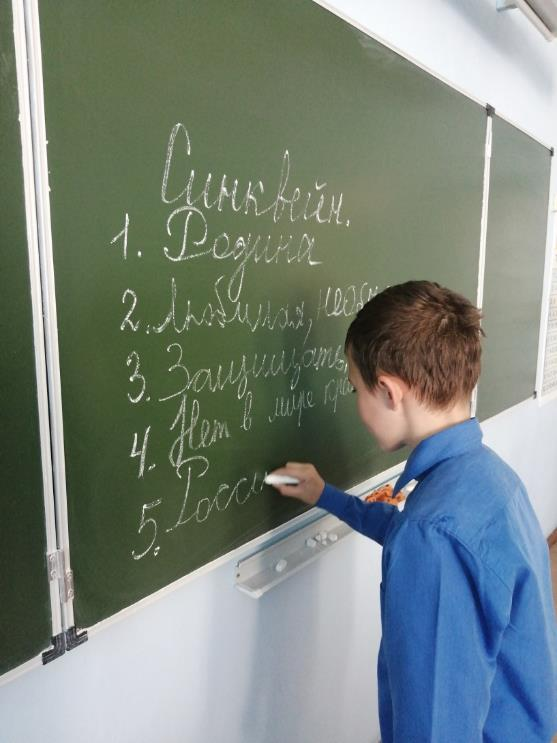 Синквейн.
1. Родина
2. Любимая,
3. Защищать,
4. Нет в мире
5. Росси